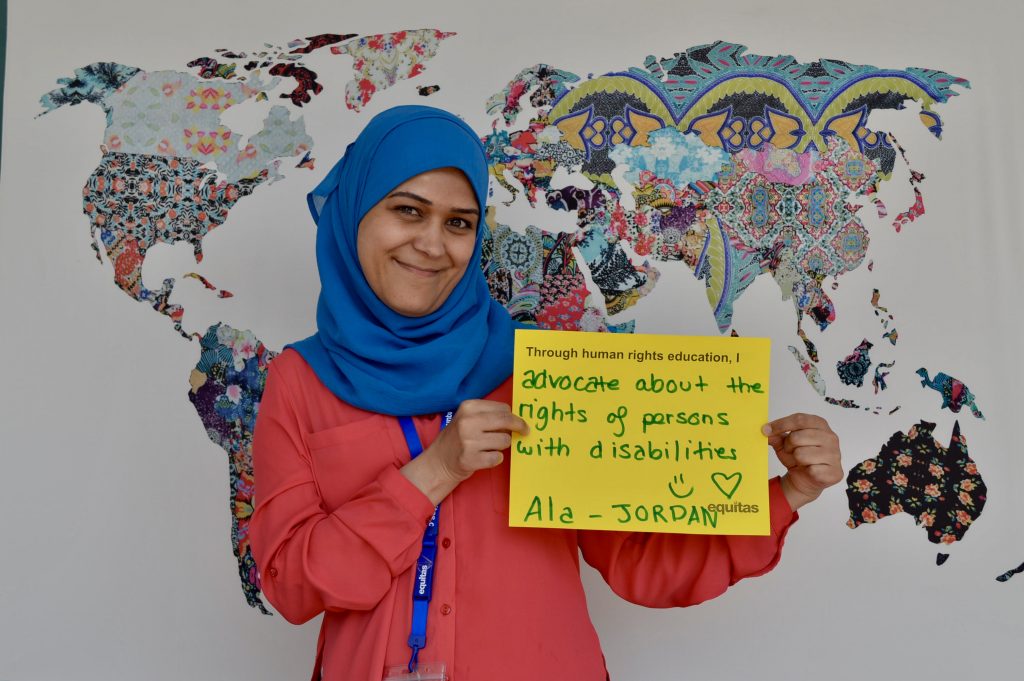 Through human rights education, I
advocate about the
rights of persons
with disabilities
equitas
Ala - JORDAN
equitas